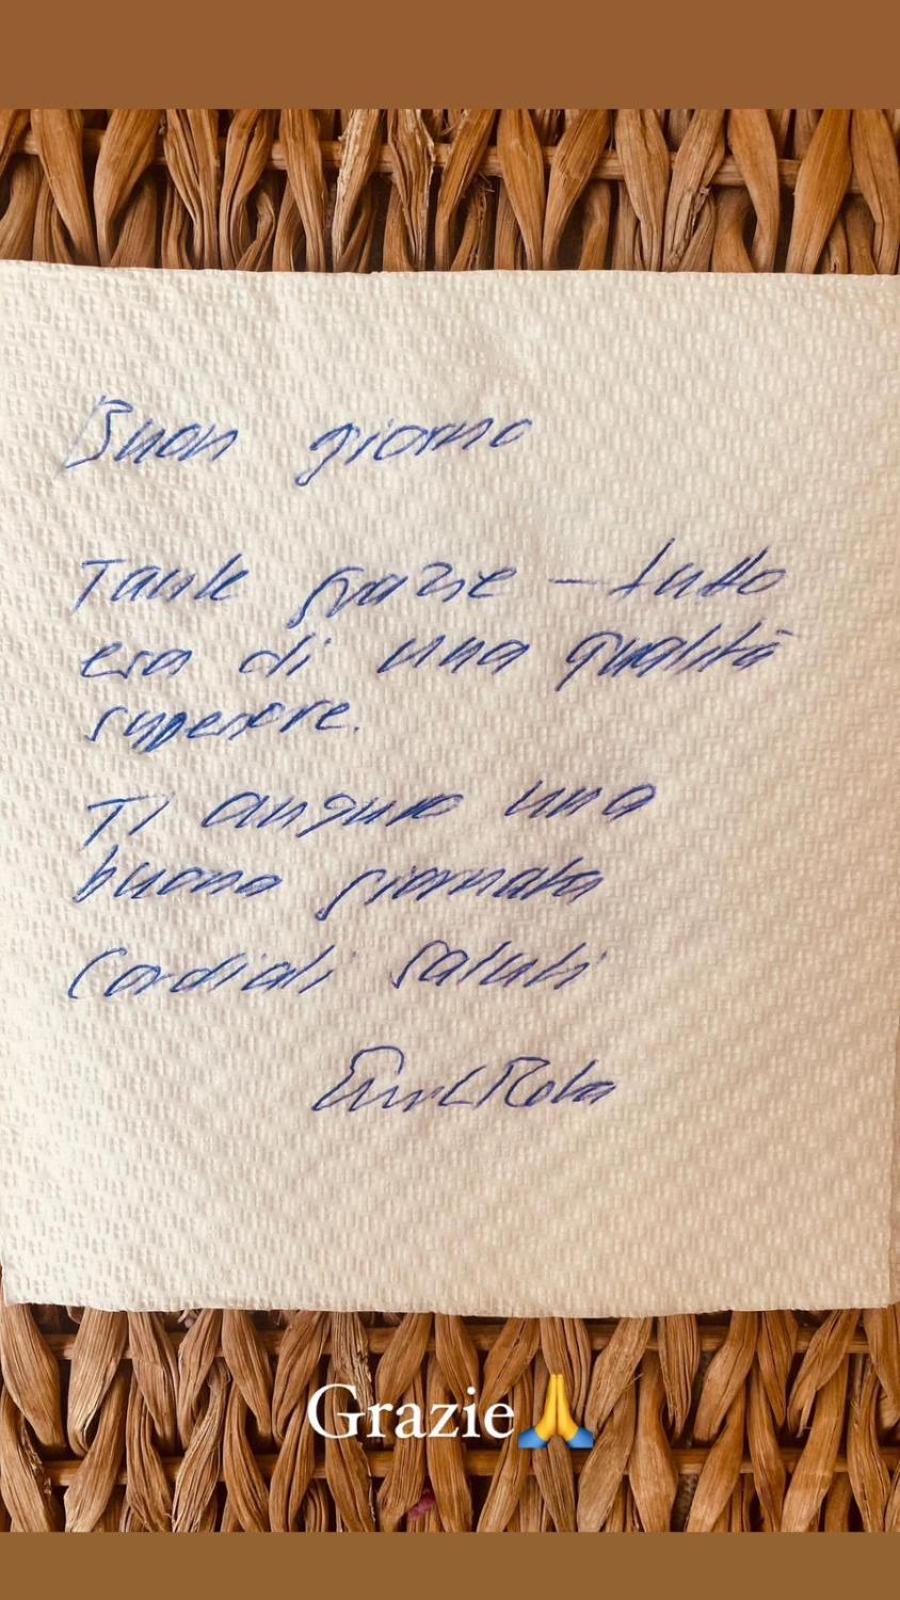 Buon giorno
Tante grazie – tutto
era di una qualità
superiore.
Ti auguro una
buona giornata
Cordiali saluti
Grazie🙏